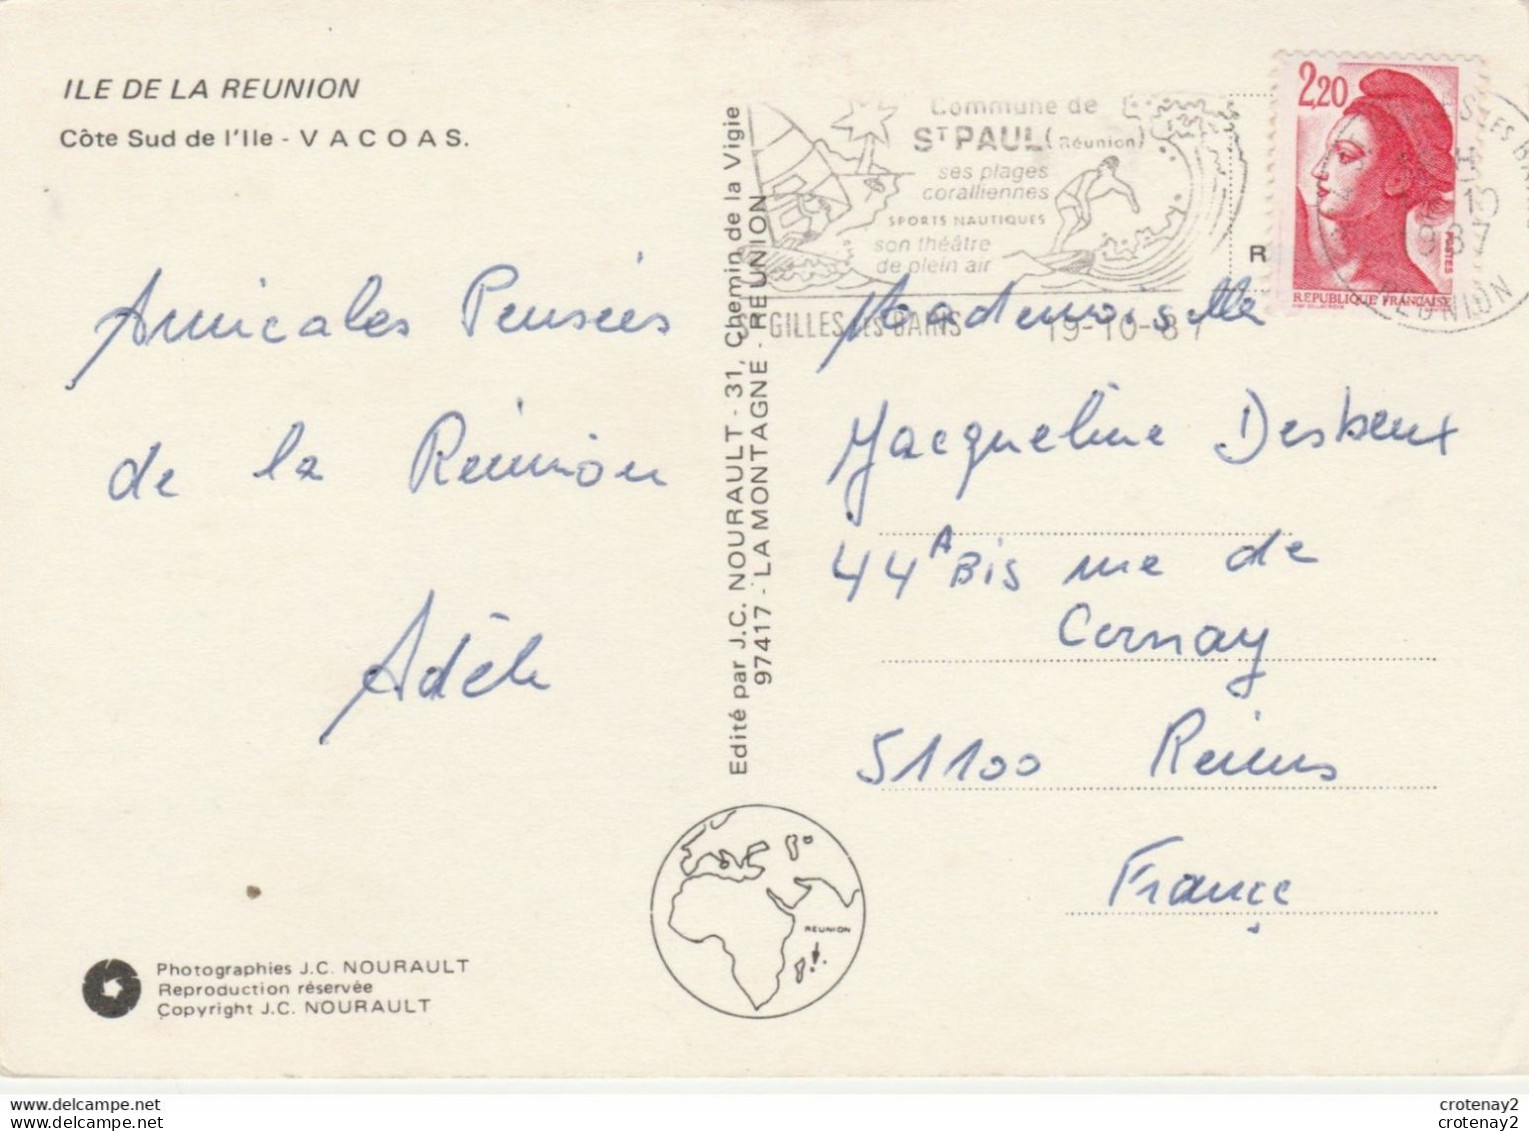 ILE DE LA REUNION
Côte Sud de l'Ile - VACOAS.
Amicales Pensées
de la Réunion
Adèle
Photographies J.C. NOURAULT
Reproduction réservée
Copyright J.C. NOURAULT
Edité par J.C. NOURAULT - 31, Chemin de la Vigie
97417 - LA MONTAGNE - REUNION
REUNION
Commune de
ST PAUL (Réunion)
ses plages
coralliennes
SPORTS NAUTIQUES
son théâtre
de plein air
ST GILLES LES BAINS 19-10-87
R
2,20
POSTES
REPUBLIQUE FRANÇAISE
REUNION
Mademoiselle
Jacqueline Desbeux
44A Bis rue de
Cernay
51100 Reims
France
delcampe.net
delcampe.net
crotenay2
crotenay2